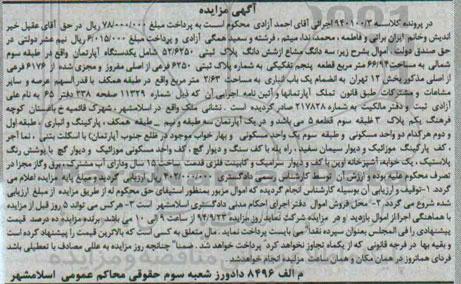 آگهی مزایده
در پرونده کلاسه ۹۴۰۱۰۰/۳ اجرائی آقای احمد آزادی محکوم است به پرداخت مبلغ ۷۸/۰۰۰/۰۰۰ ریال در حق آقای عقیل خیر
اندیش وخانم ایران براتی و فاطمه، محمد، ندا، میثم، فرشته و سعید همگی آزادی و پرداخت مبلغ ۶/۰۱۵/۰۰۰ ریال بابت نیم عشر در
حق صندوق دولت. اموال بشرح زیر: سه دانگ مشاع ازشش دانگ پلاک ثبتی ۵۲/۶۲۵۰ شامل یکدستگاه آپارتمان واقع در طبقه سوم
شمالی به مساحت ۶۶/۹۴ متر مربع قطعه پنجم تفکیکی به شماره پلاک ثبتی ۶۲۵۰ فرعی از اصلی مفروز و مجزی شده از ۶۱۷۶ فرعی
از اصلی مذکور بخش ۱۲ تهران به انضمام یک باب انباری به مساحت ۲/۶۳ متر مربع واقع در طبقه همکف با قدرالسهم عرصه و سایر
مشاعات و مشترکات طبق قانون تملک آپارتمانها و آئین نامه اجرایی آن که ذیل شماره ۱۱۳۲۹ صفحه ۳۳۸ دفتر ۶۵ به نام علی
آزادی ثبت و دفتر مالکیت به شماره ۲۱۷۸۲۸ صادر گردیده است. نشانی ملک واقع در اسلامشهر، شهرک قائمیه خیابان کوچه
فرهنگ یکم پلاک ۳ طبقه سوم قطعه ۵ می باشد و در یک آپارتمان سه طبقه واقع. طبقه همکف، پارکینگ و انباری، طبقه اول
و دوم هرکدام دو واحد مسکونی و طبقه سوم یک واحد مسکونی و بهار خواب موجود در ضلع جنوب آپارتمان) با اسکلت بتنی، نما آجر
، کف پارکینگ موزائیک و دیوار سیمان سفید، راه پله با کف سنگ و دیوار گچ، کف واحد مسکونی موزائیک و دیوار گچ با پوشش رنگ
پلاستیک، یک خوابه، آشپزخانه اوپن با کف و دیوار سرامیک و کابینت فلزی قدمت ساخت ۱۵ سال ودارای آب مشترک، برق وگاز مجزا در
تصرف محکوم علیه بوده و ارزش آن توسط کارشناس رسمی دادگستری ۲۰۲/۰۰۰/۰۰۰ ریال ارزیابی گردیده است. مبلغ پایه مزایده اعلام می
گردد. ۱-توقیف و ارزیابی آن بوسیله کارشناس انجام گردیده که اموال مزبور بمنظور استیفای حق محکوم له از طریق مزایده از مبلغ ارزیابی
شده شروع می گردد. ۲- محل فروش اموال دفتر اجرای احکام مدنی دادگستری اسلامشهر است ۳- هرکس می تواند ۵ روز قبل از مزایده
با هماهنگی اجرا از اموال بازدید و در مزایده شرکت نماید.روز مزایده ۹۴/۹/۲۳ از ساعت ۹ الی ۱۰ می باشد. برنده مزایده ده درصد قیمت
پیشنهادی را فی المجلس بعنوان سپرده نقداً می بایست پرداخت نماید. مال متعلق به کسی است که بالاترین قیمت را پیشنهاد کرده است
و بقیه بها در فرجه قانونی که از یکماه تجاوز نخواهد کرد پرداخت خواهد شد. ضمناً چنانچه روز مزایده به عللی مصادف با تعطیلی باشد
فردای همانروز در همان مکان و همان ساعت مزایده انجام خواهد شد.
م الف ۸۴۹۶ دادورز شعبه سوم حقوقی محاکم عمومی اسلامشهر